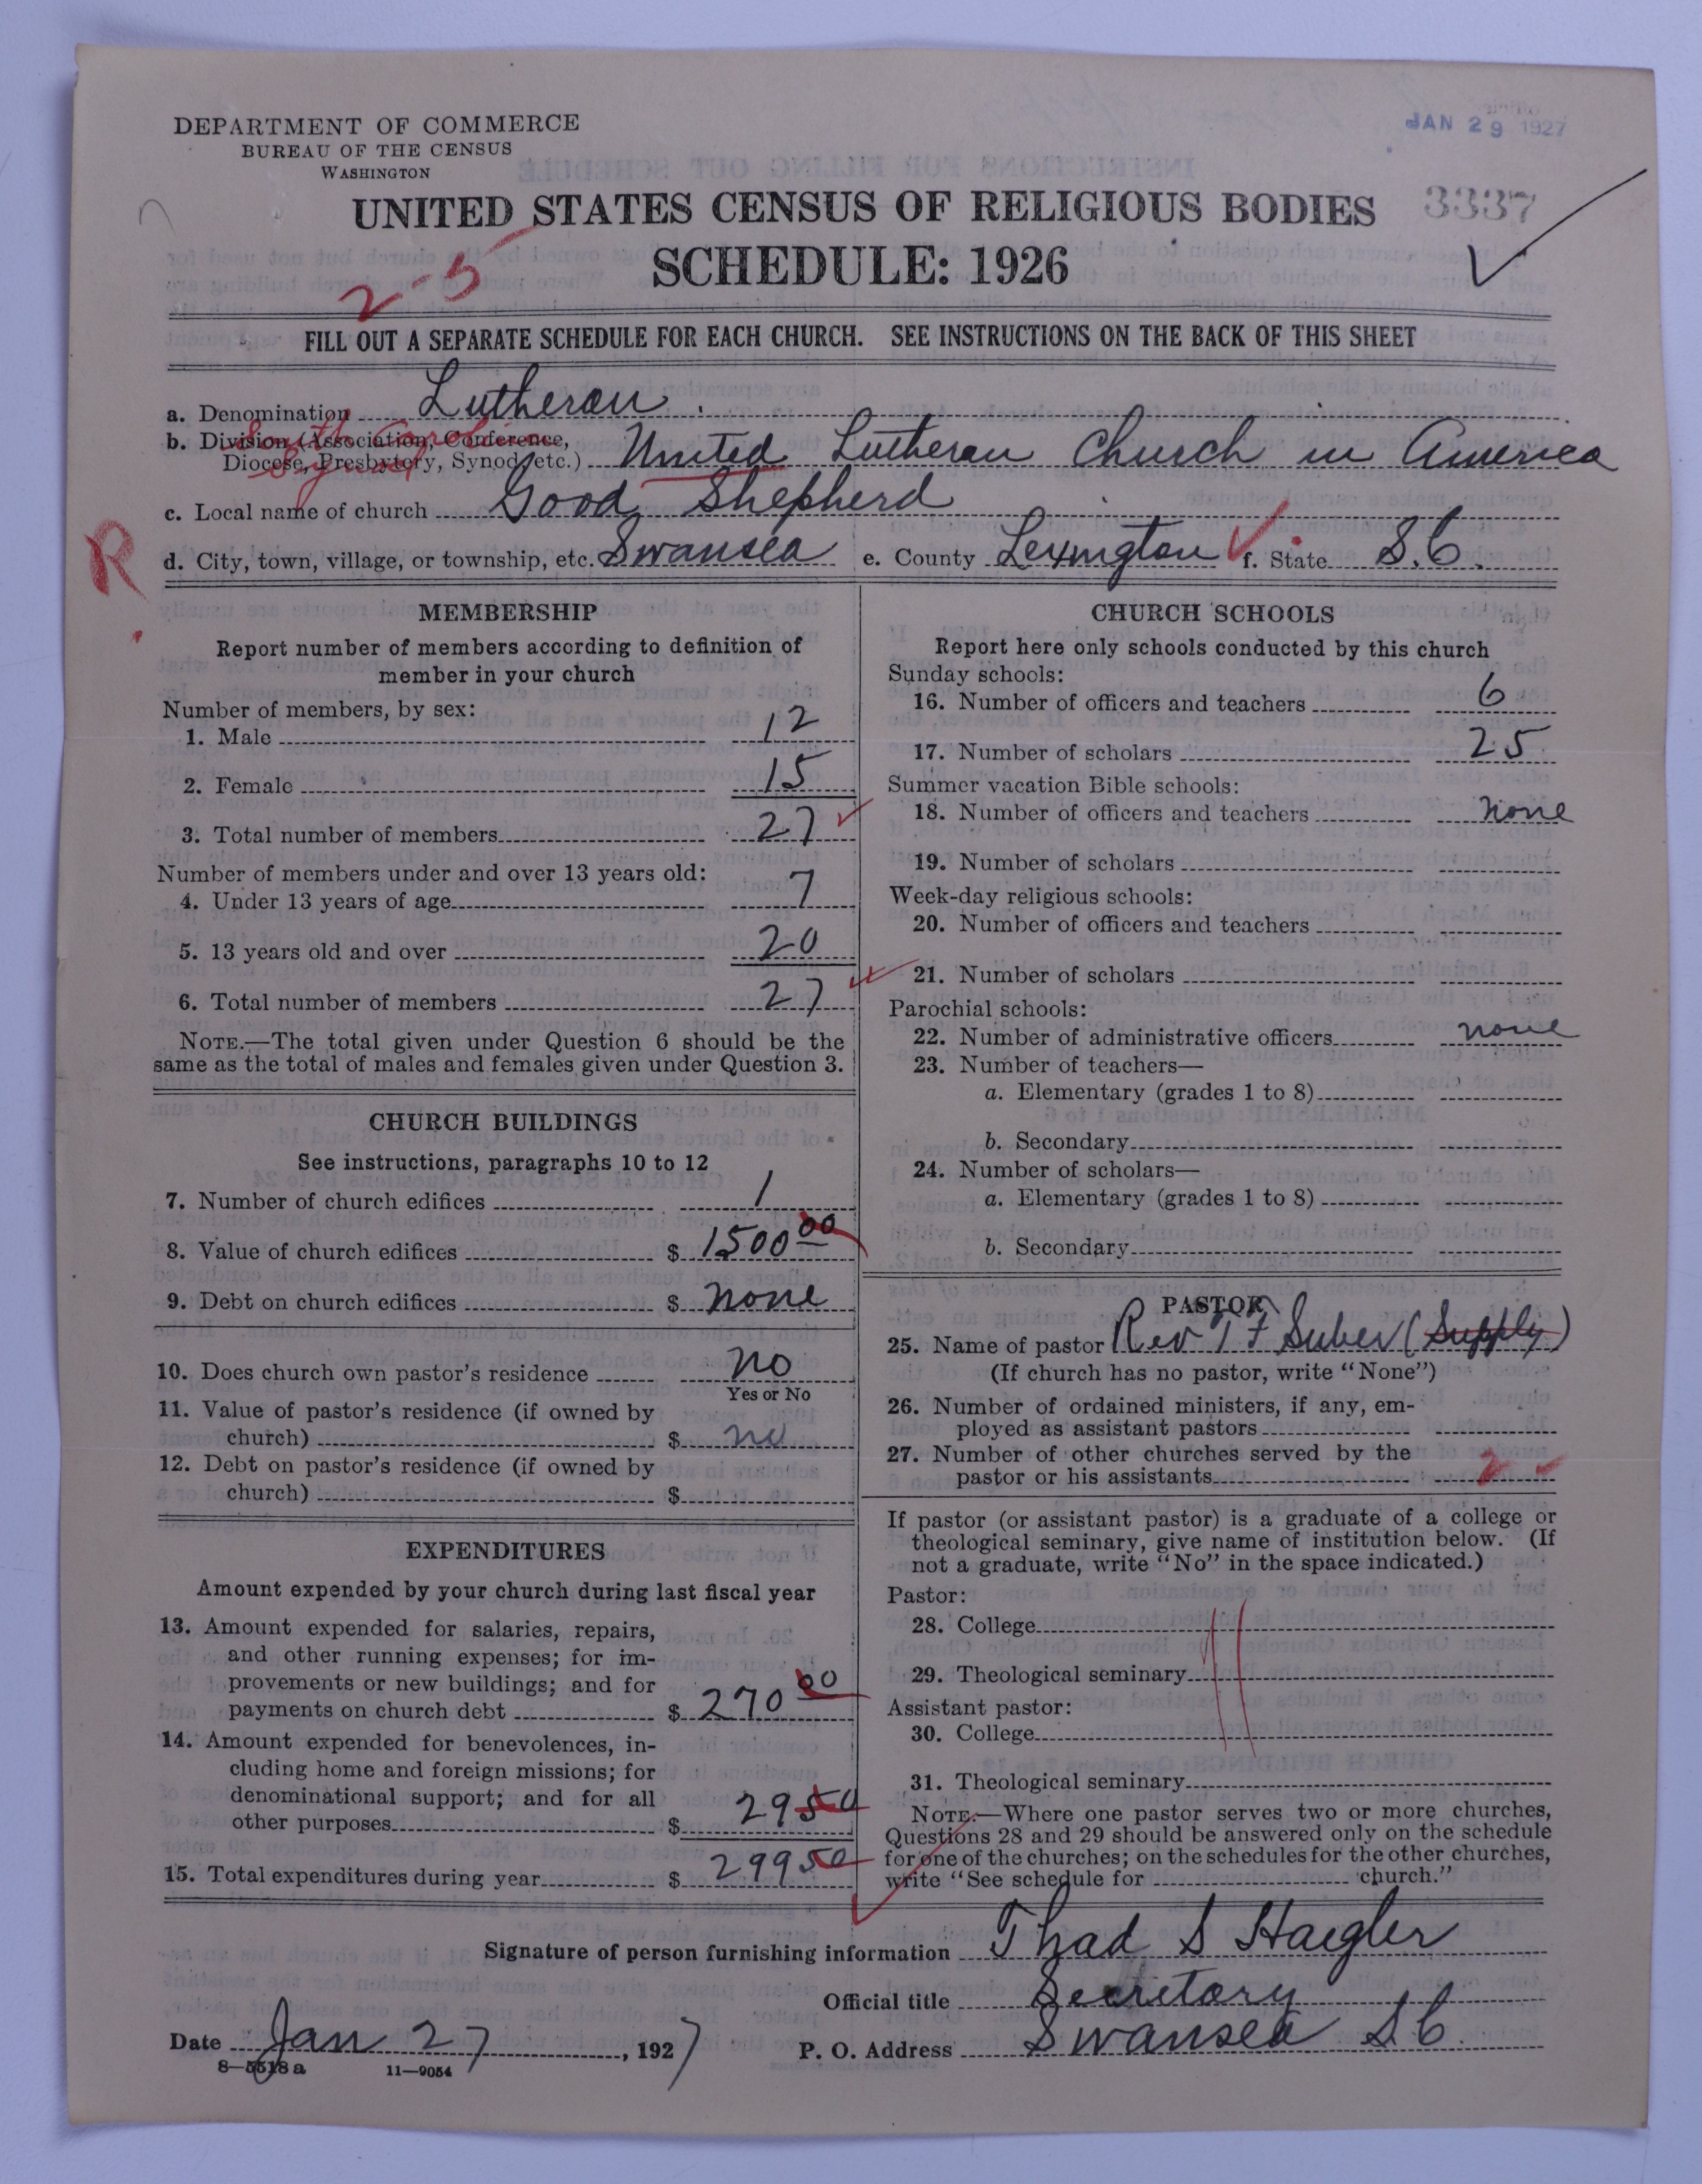 DEPARTMENT OF COMMERCE
BUREAU OF THE CENSUS
WASHINGTON
JAN 29 1927
UNITED STATES CENSUS OF RELIGIOUS BODIES
3337
SCHEDULE: 1926
2-5
FILL OUT A SEPARATE SCHEDULE FOR EACH CHURCH. SEE INSTRUCTIONS ON THE BACK OF THIS SHEET
a. Denomination Lutheran
b. Division (Association, Conference, South Carolina
Diocese, Presbytery, Synod, etc.) Synod United Lutheran Church in America
c. Local name of church Good Shepherd
R
d. City, town, village, or township, etc. Swansea e. County Lexington f. State S.C.
MEMBERSHIP
Report number of members according to definition of
member in your church
Number of members, by sex:
1. Male 12
2. Female 15
3. Total number of members 27
Number of members under and over 13 years old:
4. Under 13 years of age 7
5. 13 years old and over 20
6. Total number of members 27
NOTE.—The total given under Question 6 should be the
same as the total of males and females given under Question 3.
CHURCH BUILDINGS
See instructions, paragraphs 10 to 12
7. Number of church edifices 1
8. Value of church edifices $ 1500 00
9. Debt on church edifices $ none
10. Does church own pastor's residence no
Yes or No
11. Value of pastor's residence (if owned by
church) $ no
12. Debt on pastor's residence (if owned by
church) $
EXPENDITURES
Amount expended by your church during last fiscal year
13. Amount expended for salaries, repairs,
and other running expenses; for im-
provements or new buildings; and for
payments on church debt $ 270 00
14. Amount expended for benevolences, in-
cluding home and foreign missions; for
denominational support; and for all
other purposes $ 29 50
15. Total expenditures during year $ 299 50
CHURCH SCHOOLS
Report here only schools conducted by this church
Sunday schools:
16. Number of officers and teachers 6
17. Number of scholars 25
Summer vacation Bible schools:
18. Number of officers and teachers none
19. Number of scholars
Week-day religious schools:
20. Number of officers and teachers
21. Number of scholars
Parochial schools:
22. Number of administrative officers none
23. Number of teachers—
a. Elementary (grades 1 to 8)
b. Secondary
24. Number of scholars—
a. Elementary (grades 1 to 8)
b. Secondary
PASTOR
25. Name of pastor Rev T F Suber (Supply)
(If church has no pastor, write "None")
26. Number of ordained ministers, if any, em-
ployed as assistant pastors
27. Number of other churches served by the
pastor or his assistants 2
If pastor (or assistant pastor) is a graduate of a college or
theological seminary, give name of institution below. (If
not a graduate, write "No" in the space indicated.)
Pastor:
28. College
29. Theological seminary
Assistant pastor:
30. College
31. Theological seminary
NOTE.—Where one pastor serves two or more churches,
Questions 28 and 29 should be answered only on the schedule
for one of the churches; on the schedules for the other churches,
write "See schedule for church."
Signature of person furnishing information Thad S Haigler
Official title Secretory
Date Jan 27, 1927 P. O. Address Swansea S.C.
8—5518a 11—9054